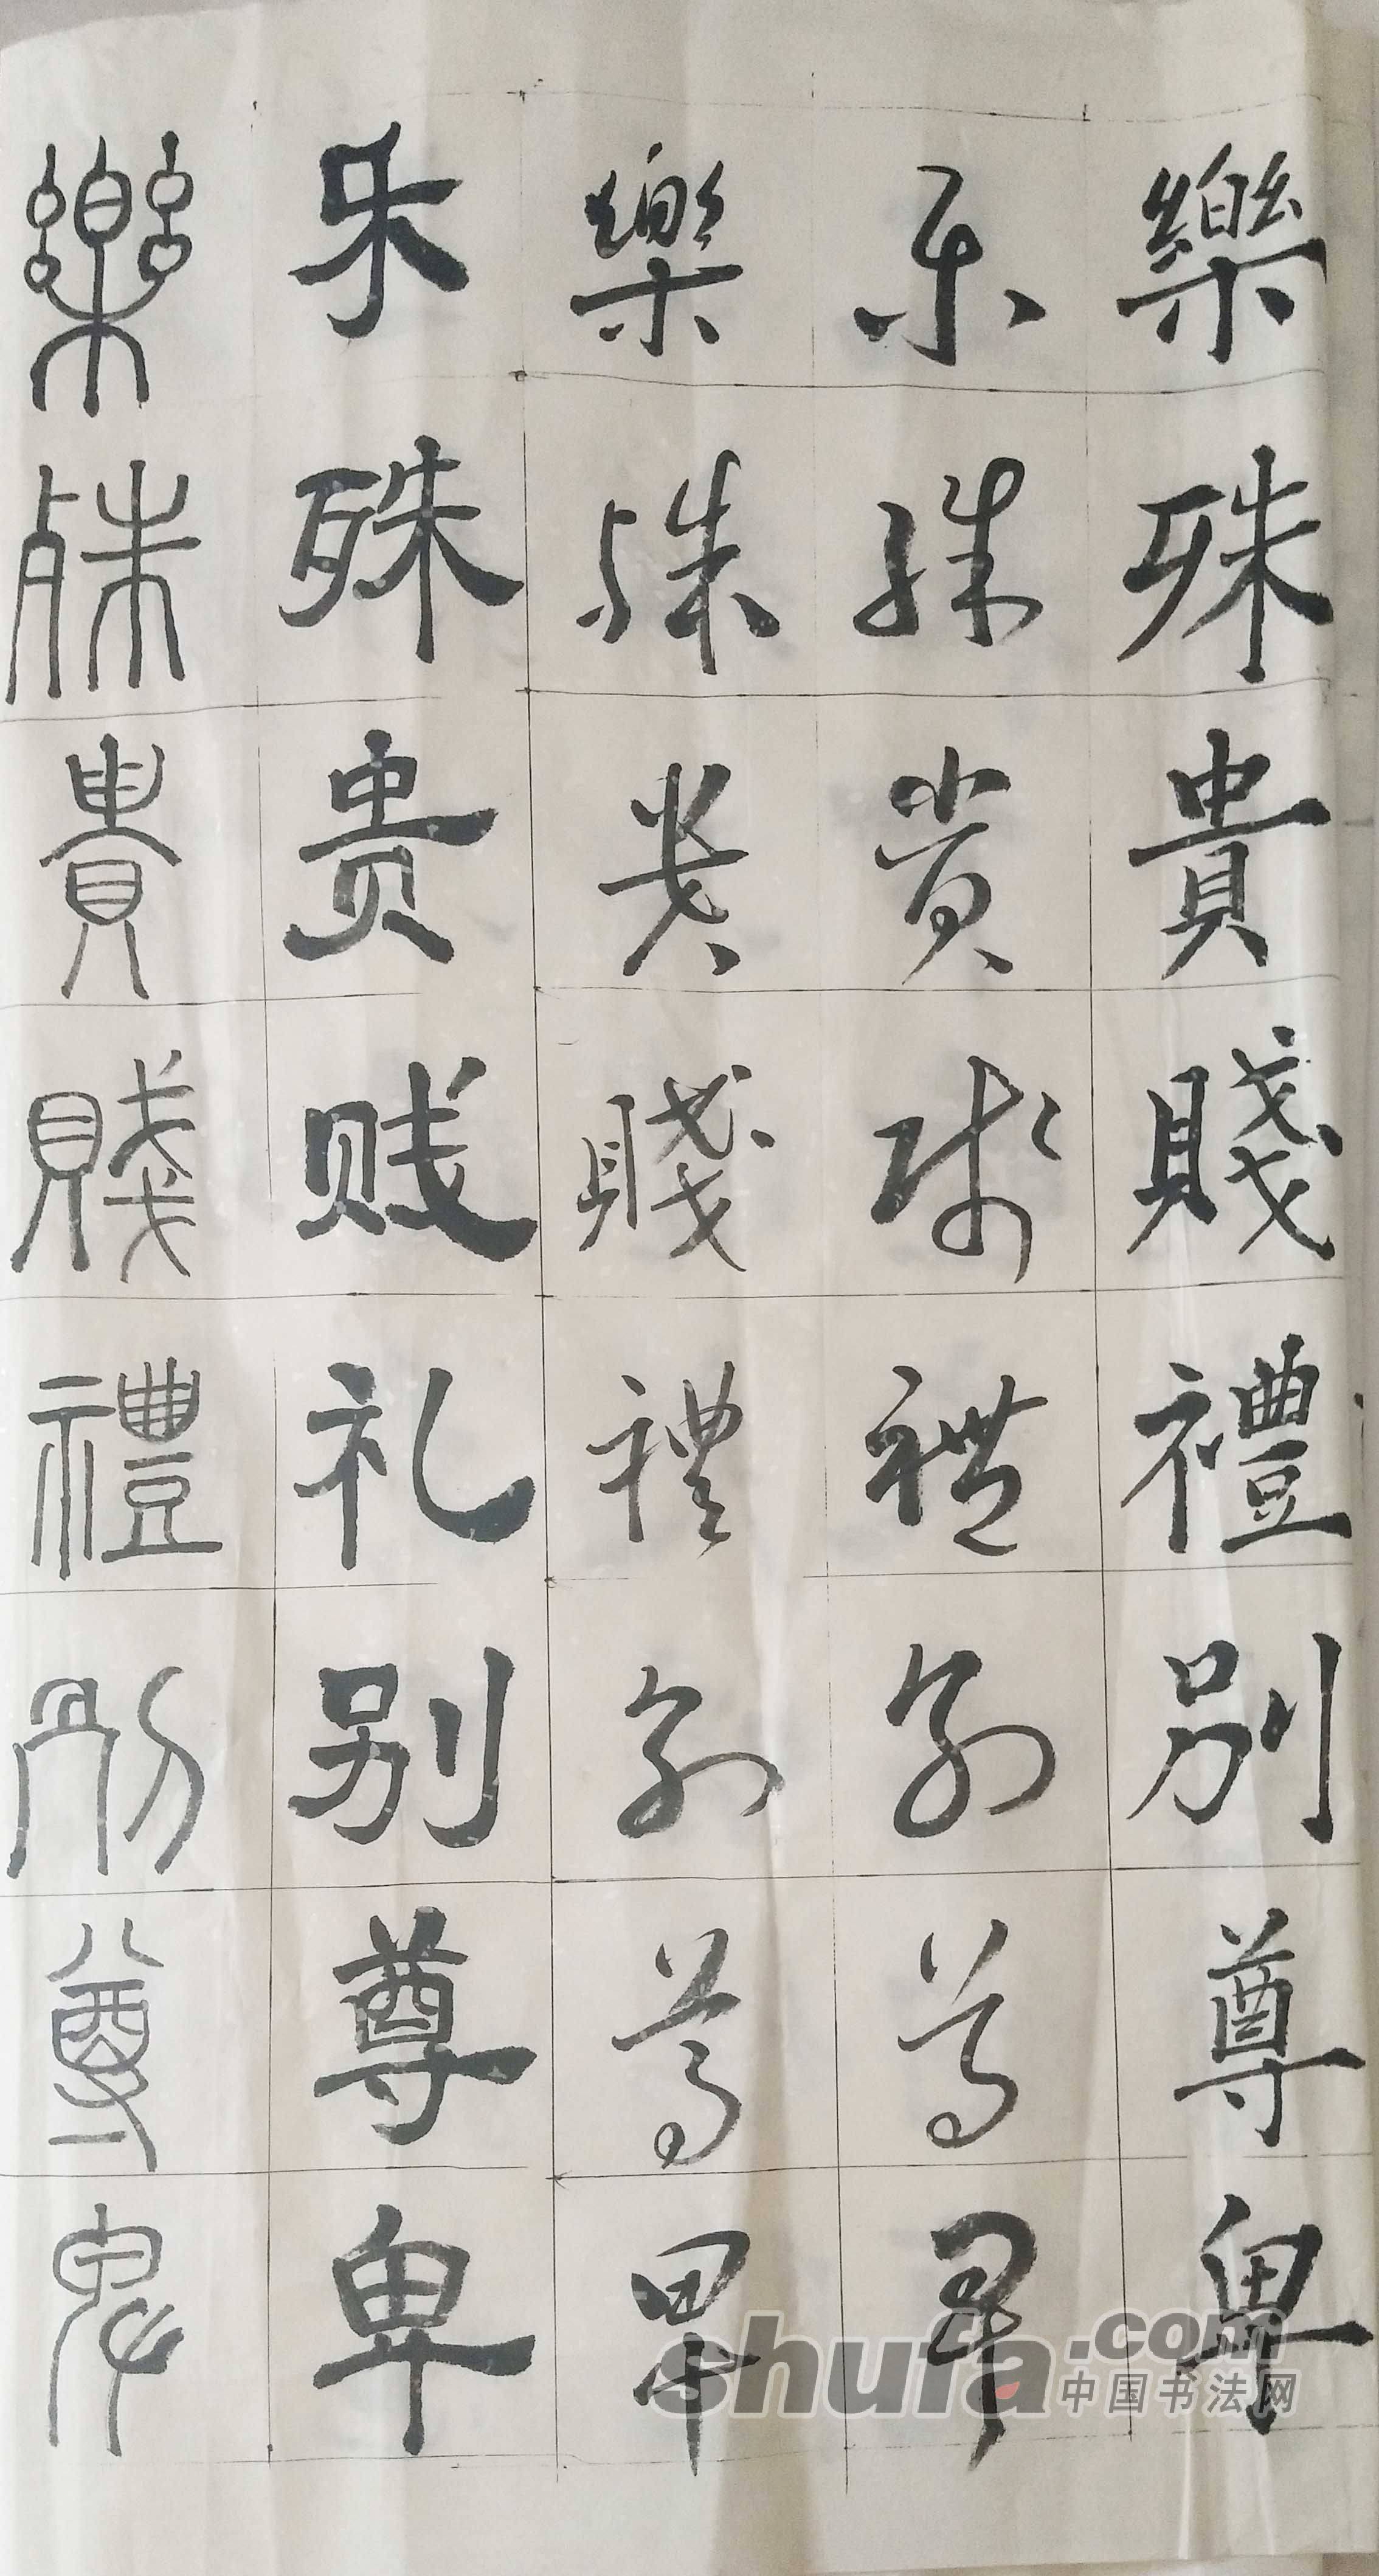 樂殊貴賤禮別尊卑
乐殊貴賤禮別尊卑
樂殊貴賤禮別尊卑
乐殊贵贱礼别尊卑
樂殊貴賤禮別尊卑
shufa.com
中国书法网